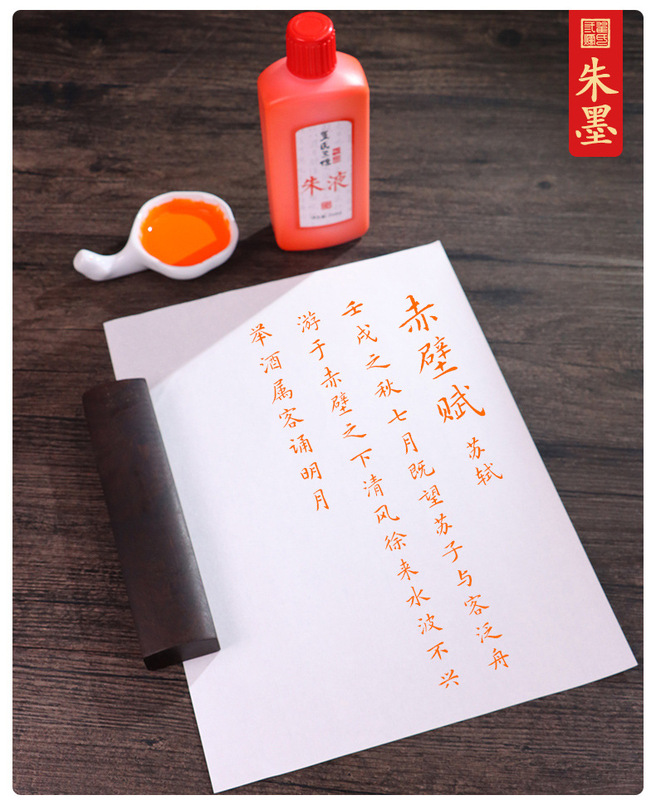 朱墨
朱液
赤壁赋
苏轼
壬戌之秋七月既望苏子与客泛舟
游于赤壁之下清风徐来水波不兴
举酒属客诵明月